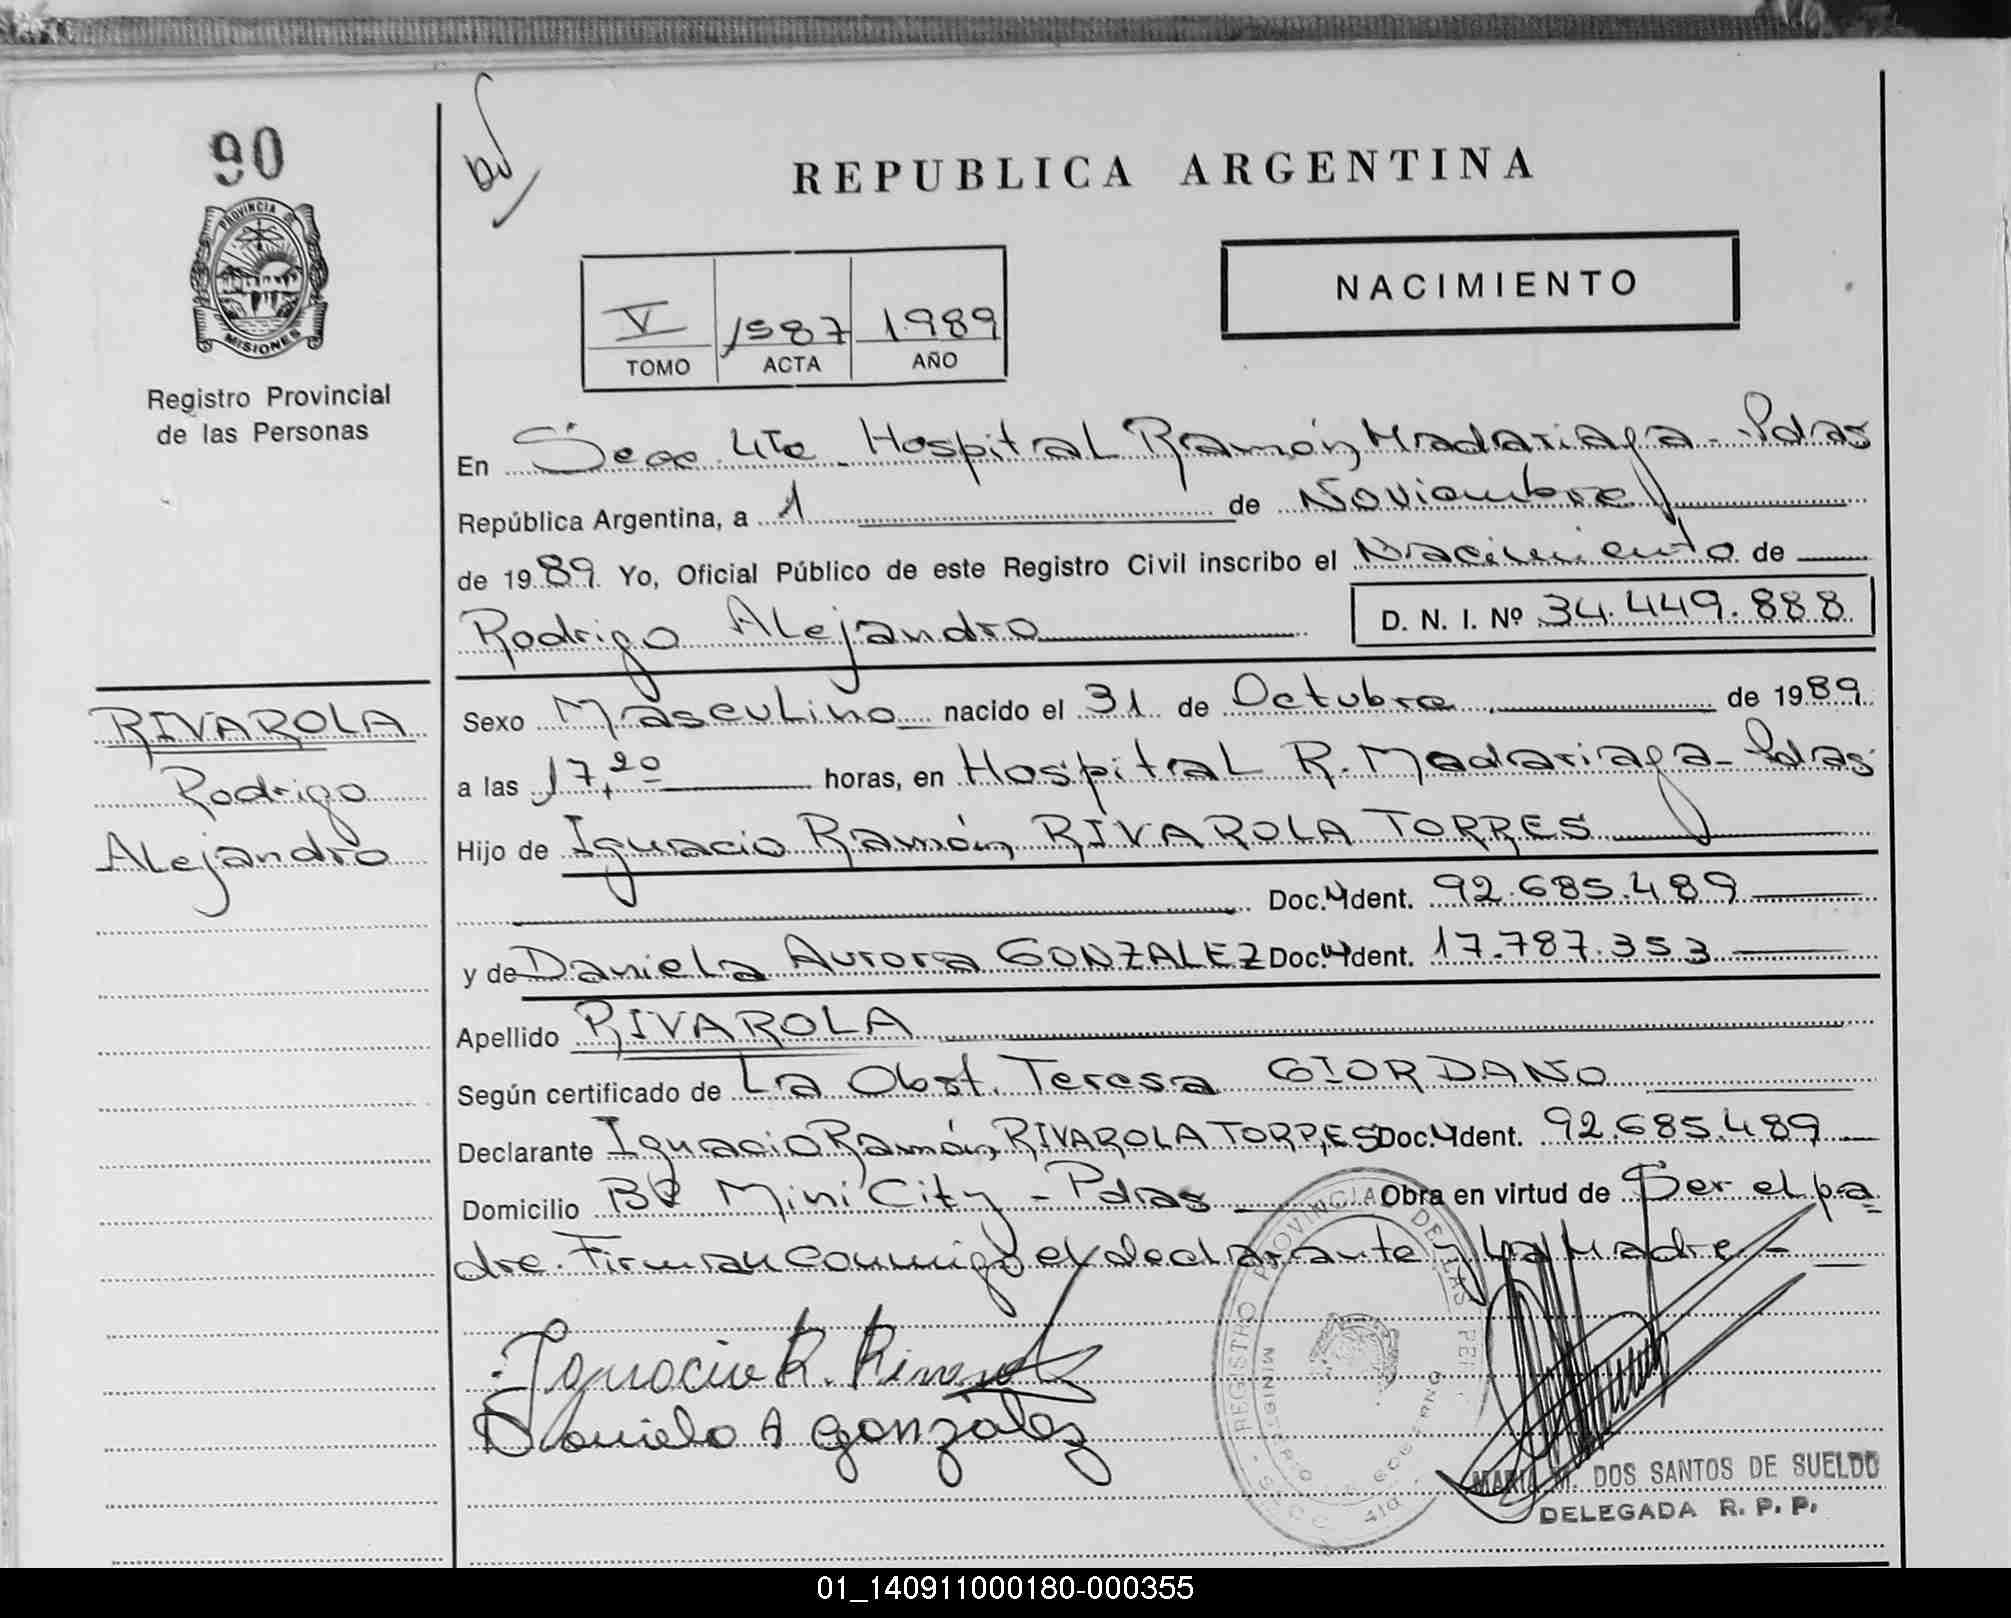 90
PROVINCIA DE
MISIONES
Registro Provincial
de las Personas
REPUBLICA ARGENTINA
NACIMIENTO
V 1587 1989
TOMO ACTA AÑO
En Secc. 4ta. Hospital Ramón Madariaga - Pdas
República Argentina, a 1 de Noviembre
de 1989 Yo, Oficial Público de este Registro Civil inscribo el Nacimiento de
Rodrigo Alejandro D. N. I. Nº 34.449.888
RIVAROLA
Rodrigo
Alejandro
Sexo Masculino nacido el 31 de Octubre de 1989
a las 17,20 horas, en Hospital R. Madariaga - Pdas
Hijo de Ignacio Ramón RIVAROLA TORRES
Doc. Ident. 92.685.489
y de Daniela Aurora GONZALEZ Doc. Ident. 17.787.353
Apellido RIVAROLA
Según certificado de La Obst. Teresa GIORDANO
Declarante Ignacio Ramón RIVAROLA TORRES Doc. Ident. 92.685.489
Domicilio Bº Mini City - Pdas Obra en virtud de Ser el pa
dre. Firman conmigo el declarante y La Madre -
Ignacio R. Rivarola
Daniela A gonzalez
REGISTRO PROVINCIAL DE LAS PER
MINISTERIO DE GOBIERNO
MARIA M. DOS SANTOS DE SUELDO
DELEGADA R. P. P.
01_140911000180-000355